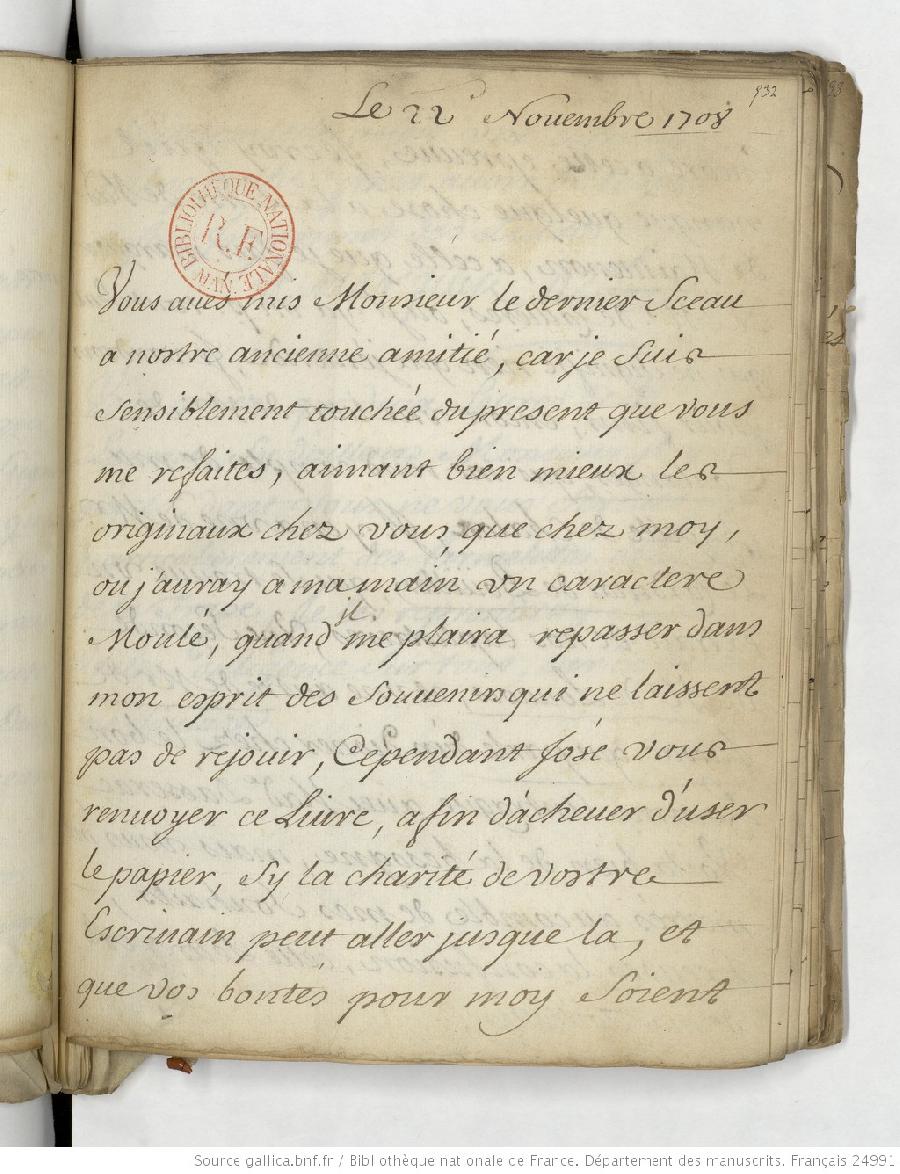 932
Le 22 Nouembre 1708
BIBLIOTHEQUE NATIONALE MAN
R.F
Vous aués mis Monsieur le dernier Sceau
a nostre ancienne amitié, car je Suis
Sensiblement touchée du present que vous
me refaites, aimant bien mieux les
originaux chez vous, que chez moy,
ou j'auray a ma main vn caractere
Moulé, quand il me plaira repasser dans
mon esprit des Souvenirs qui ne laissent
pas de rejouir, Cependant J'ose vous
renuoyer ce Liure, afin d'acheuer d'user
le papier, Sy la charité de vostre
Escriuain peut aller jusque la, et
que vos bontés pour moy Soient
Source gallica.bnf.fr / Bibliothèque nationale de France. Département des manuscrits. Français 24991